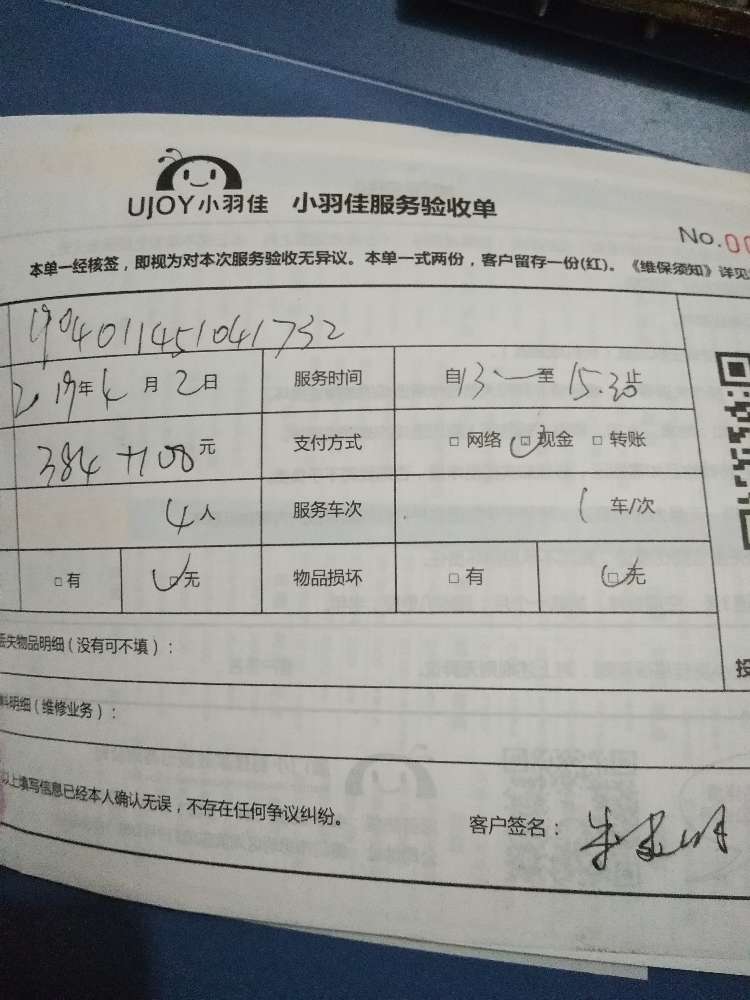 UJOY小羽佳 小羽佳服务验收单
No.00
本单一经核签，即视为对本次服务验收无异议。本单一式两份，客户留存一份(红)。《维保须知》详见
1904011451041732
2019年4月2日 服务时间 自13.—至15.30止
384+100元 支付方式 □网络 □现金 □转账
4人 服务车次 1车/次
□有 □无 物品损坏 □有 □无
丢失物品明细（没有可不填）：
料明细（维修业务）：
以上填写信息已经本人确认无误，不存在任何争议纠纷。
客户签名：
投